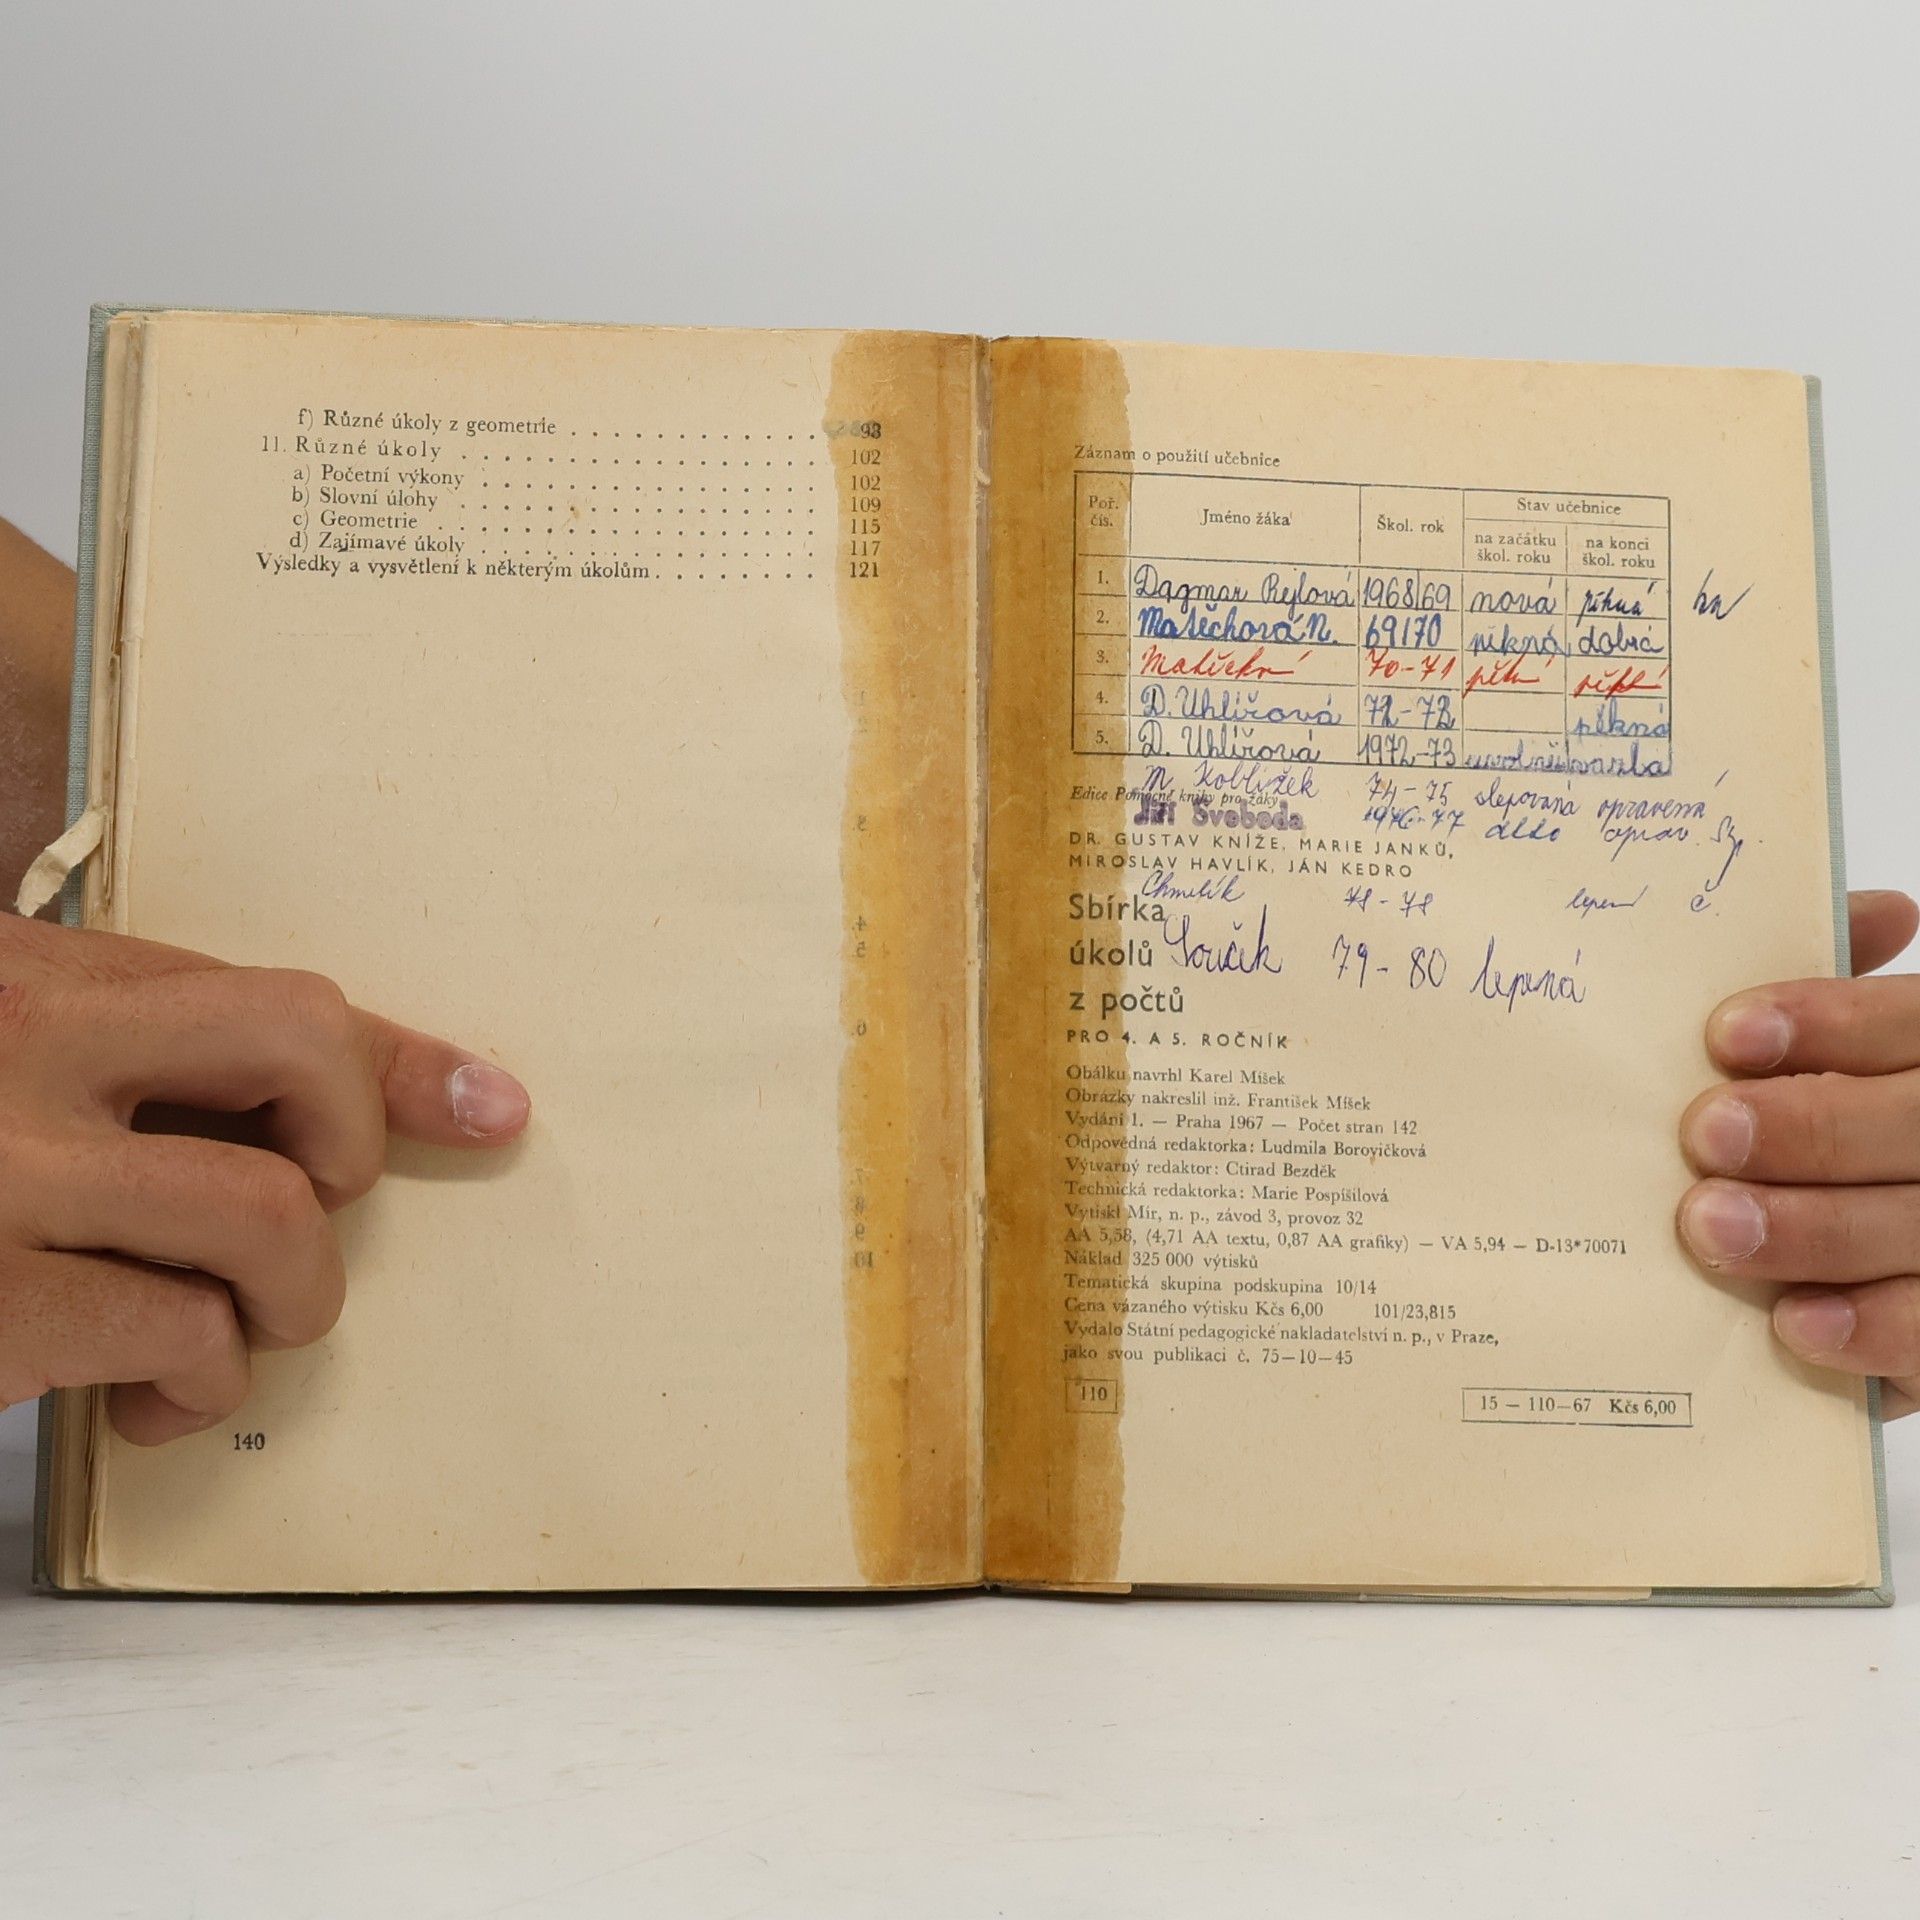 f) Různé úkoly z geometrie . . . . . . . . . . . . 98
11. Různé úkoly . . . . . . . . . . . . . . . . . 102
a) Početní výkony . . . . . . . . . . . . . . . . 102
b) Slovní úlohy . . . . . . . . . . . . . . . . . 109
c) Geometrie . . . . . . . . . . . . . . . . . . 115
d) Zajímavé úkoly . . . . . . . . . . . . . . . . 117
Výsledky a vysvětlení k některým úkolům . . . . . . . . 121
140
Záznam o použití učebnice
Poř. čís. Jméno žáka Škol. rok Stav učebnice
na začátku škol. roku na konci škol. roku
1. Dagmar Rejlová 1968/69 nová pěkná
2. Matěchová N. 69/70 pěkná dobrá
3. 70-71
4. D. Uhlířová 72-72 pěkná
5. D. Uhlířová 1972-73 vazba
M Koblížek 74-75 slepovaná opravená
Edice Pomocné knihy pro žáky
Jiří Svoboda 1976-77 dtto oprav.
DR. GUSTAV KNÍŽE, MARIE JANKŮ,
MIROSLAV HAVLÍK, JÁN KEDRO
Chmelík 78-78 č.
Sbírka
úkolů Souček 79-80 lepená
z počtů
PRO 4. A 5. ROČNÍK
Obálku navrhl Karel Míšek
Obrázky nakreslil inž. František Míšek
Vydání 1. — Praha 1967 — Počet stran 142
Odpovědná redaktorka: Ludmila Borovičková
Výtvarný redaktor: Ctirad Bezděk
Technická redaktorka: Marie Pospíšilová
Vytiskl Mír, n. p., závod 3, provoz 32
AA 5,58, (4,71 AA textu, 0,87 AA grafiky) — VA 5,94 — D-13*70071
Náklad 325 000 výtisků
Tematická skupina podskupina 10/14
Cena vázaného výtisku Kčs 6,00 101/23,815
Vydalo Státní pedagogické nakladatelství n. p., v Praze,
jako svou publikaci č. 75—10—45
110
15 — 110—67 Kčs 6,00